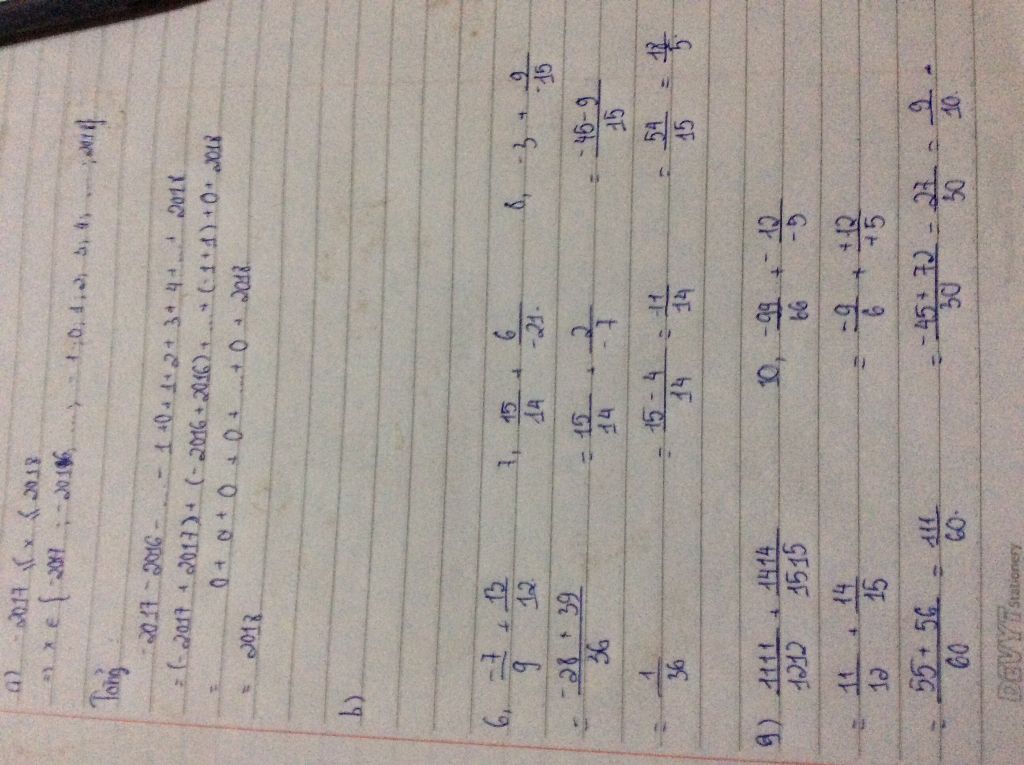 a) -2017 ≤ x ≤ 2018
=> x ∈ {-2017; -2016; ....; -1; 0; 1; 2; 3; 4; ....; 2018}
Tổng:
-2017 - 2016 - ... - 1 + 0 + 1 + 2 + 3 + 4 + ... + 2018
= (-2017 + 2017) + (-2016 + 2016) + ... + (-1 + 1) + 0 + 2018
= 0 + 0 + 0 + 0 + ... + 0 + 2018
= 2018
b)
6, -7/9 + 13/12
= -28 + 39/36
= 1/36
7, 15/14 + 6/-21
= 15/14 + 2/-7
= 15 - 4/14 = 11/14
8, -3 + 9/-15
= -45 - 9/15
= 54/15 = 18/5
9) 1111/1212 + 1414/1515
= 11/12 + 14/15
= 55 + 56/60 = 111/60
10, -99/66 + -12/-5
= -9/6 + +12/+5
= -45 + 72/30 = 27/30 = 9/10
Stationery